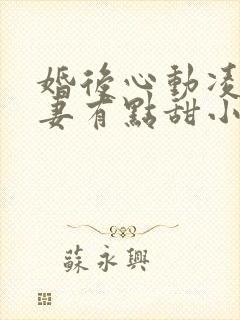 婚後心動凌
妻有點甜小
蘇永興